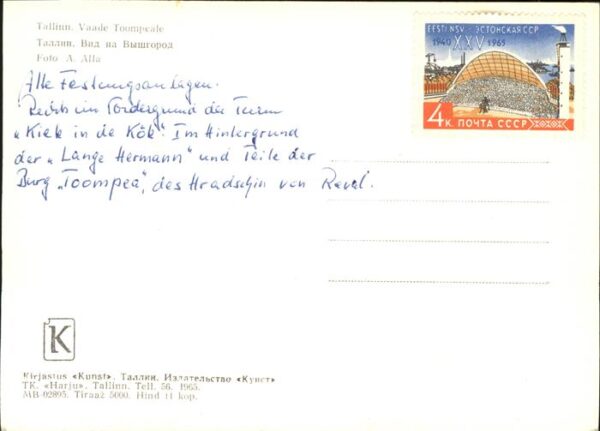 Tallinn. Vaade Toompeale
Таллин. Вид на Вышгород
Foto A. Alla
Alte Festungsanlagen.
Rechts im Vordergrund der Turm
„Kiek in de Kök". Im Hintergrund
der „Lange Hermann" und Teile der
Burg „Toompea", des Hradschin von Reval.
EESTI NSV · ЭСТОНСКАЯ ССР
1940 XXV 1965
4 К. ПОЧТА СССР
K
Kirjastus «Kunst». Таллин. Издательство «Кунст»
TK. «Harju», Tallinn. Tell. 56. 1965.
MB-02895. Tiraaž 5000. Hind 11 kop.